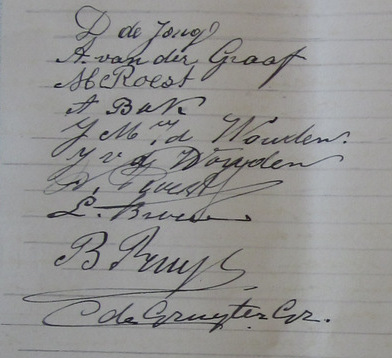 D de Jong
A. van der Graaf
M Roest
A Bak
J M v. d. Wouden.
J v d Wouden
Roest
L.
B Kruyt
C de Gruyter Cor.